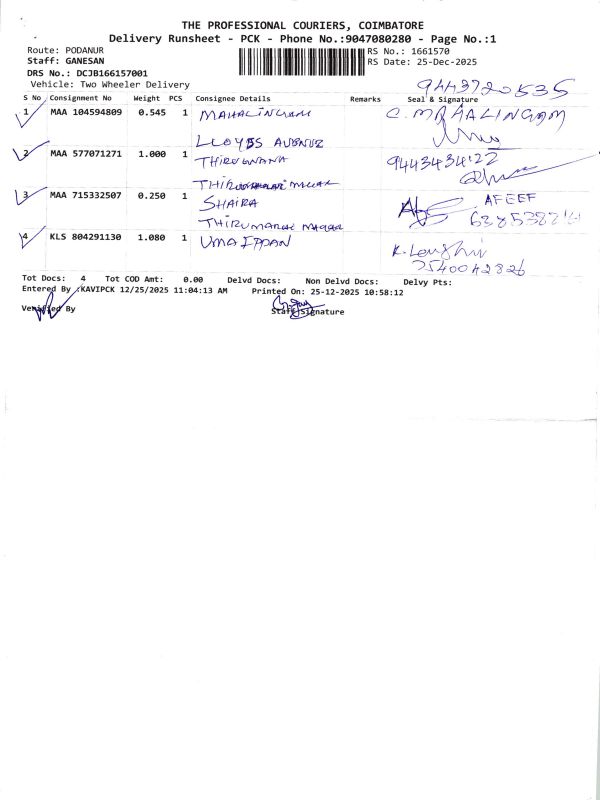 THE PROFESSIONAL COURIERS, COIMBATORE
Delivery Runsheet - PCK - Phone No.:9047080280 - Page No.:1
Route: PODANUR
RS No.: 1661570
Staff: GANESAN
RS Date: 25-Dec-2025
DRS No.: DCJB166157001
Vehicle: Two Wheeler Delivery
9443720535
S No Consignment No Weight PCS Consignee Details Remarks Seal & Signature
1 MAA 104594809 0.545 1 MAHALINGAM C. MAHALINGAM
LLOYDS AVENUE
2 MAA 577071271 1.000 1 THIRUGNANA 9443434122
3 MAA 715332507 0.250 1 SHAIRA AFEEF
THIRUMARAI NAGAR
4 KLS 804291130 1.080 1 UMAIPPAN
Tot Docs: 4 Tot COD Amt: 0.00 Delvd Docs: Non Delvd Docs: Delvy Pts:
Entered By :KAVIPCK 12/25/2025 11:04:13 AM Printed On: 25-12-2025 10:58:12
Verified By Staff Signature